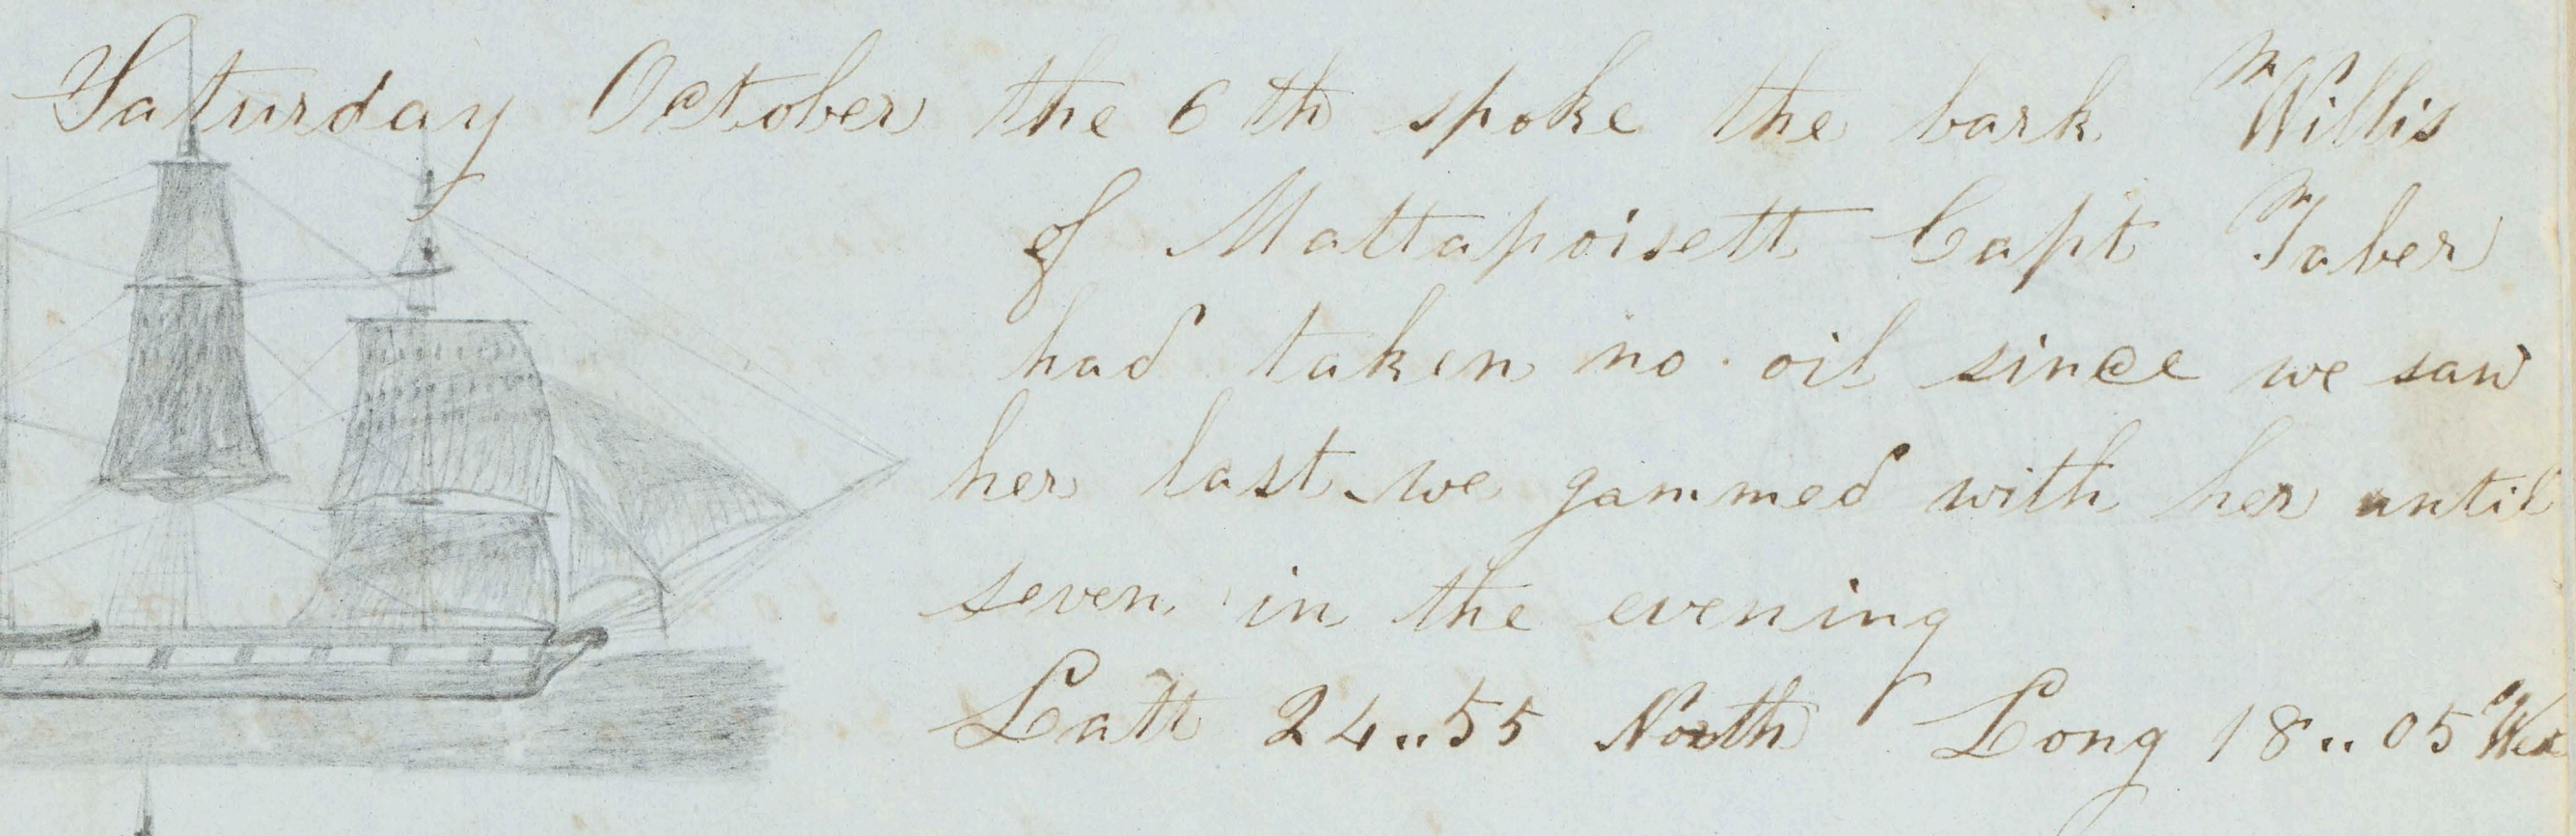 Saturday October the 6th spoke the bark Willis
of Mattapoisett Capt Taber
had taken no oil since we saw
her last we gammed with her until
seven in the evening
Latt 24..55 North Long 18..05 Wes